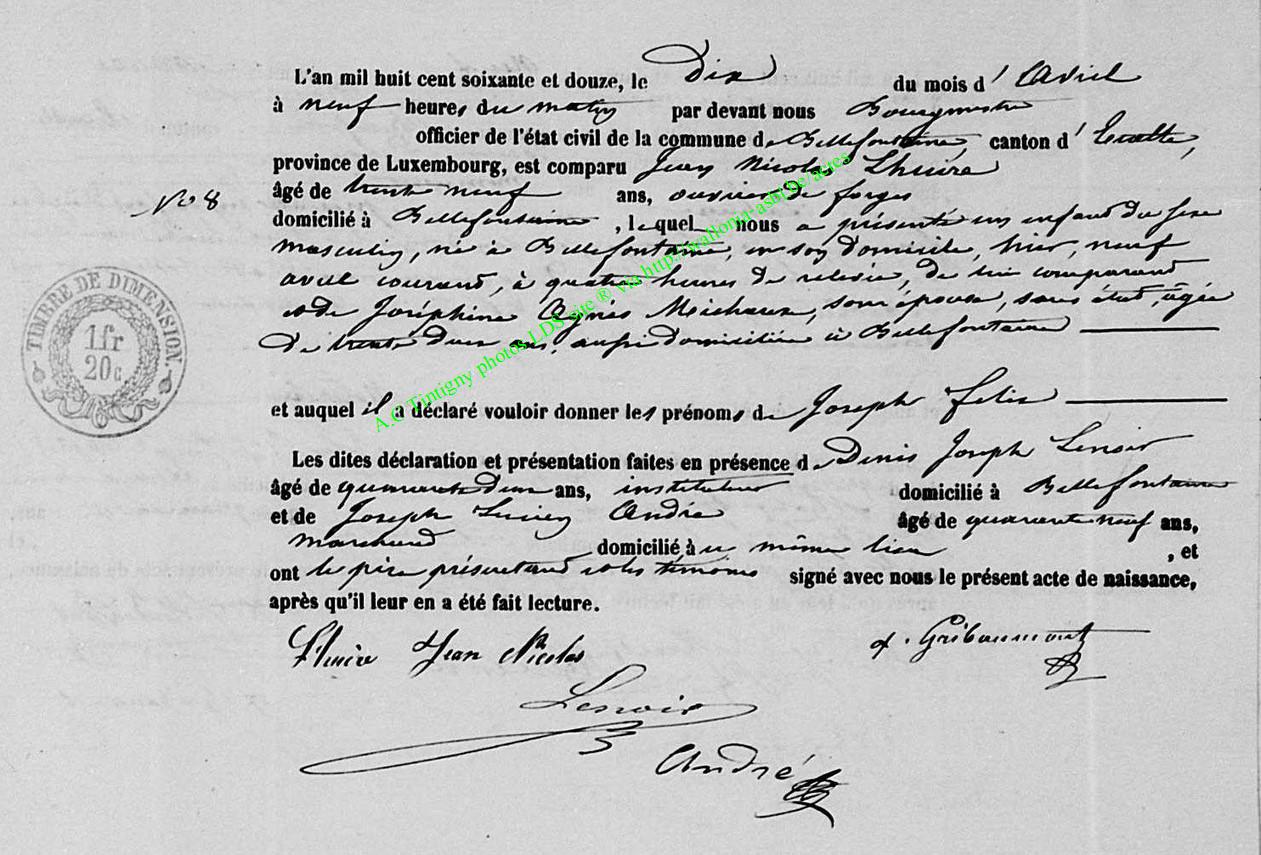 L'an mil huit cent soixante et douze, le Dix du mois d'Avril
à neuf heures du matin par devant nous Bourgmestre
officier de l'état civil de la commune de Bellefontaine, canton d'Etalle,
province de Luxembourg, est comparu Jean Nicolas Lhuire
âgé de trente neuf ans, ouvrier de forges
No 8
domicilié à Bellefontaine, lequel nous a présenté un enfant du sexe
masculin, né à Bellefontaine, en son domicile, hier, neuf
avril courant, à quatre heures de relevée, de lui comparant
et de Joséphine Agnes Michaux, son épouse, sans état, âgée
de trente deux ans, aussi domiciliée à Bellefontaine
TIMBRE DE DIMENSION.
1 fr
20 c
et auquel il a déclaré vouloir donner les prénoms de Joseph Felix
Les dites déclaration et présentation faites en présence de Denis Joseph Lenoir
âgé de quarante deux ans, instituteur domicilié à Bellefontaine
et de Joseph Lucien André âgé de quarante neuf ans,
marchand domicilié au même lieu, et
ont le père présentant et les témoins signé avec nous le présent acte de naissance,
après qu'il leur en a été fait lecture.
Lhuire Jean Nicolas
Gribaumont
Lenoir
André
A.C Tintigny photos LDS site ® via http://wallonia-asbl.be/actes